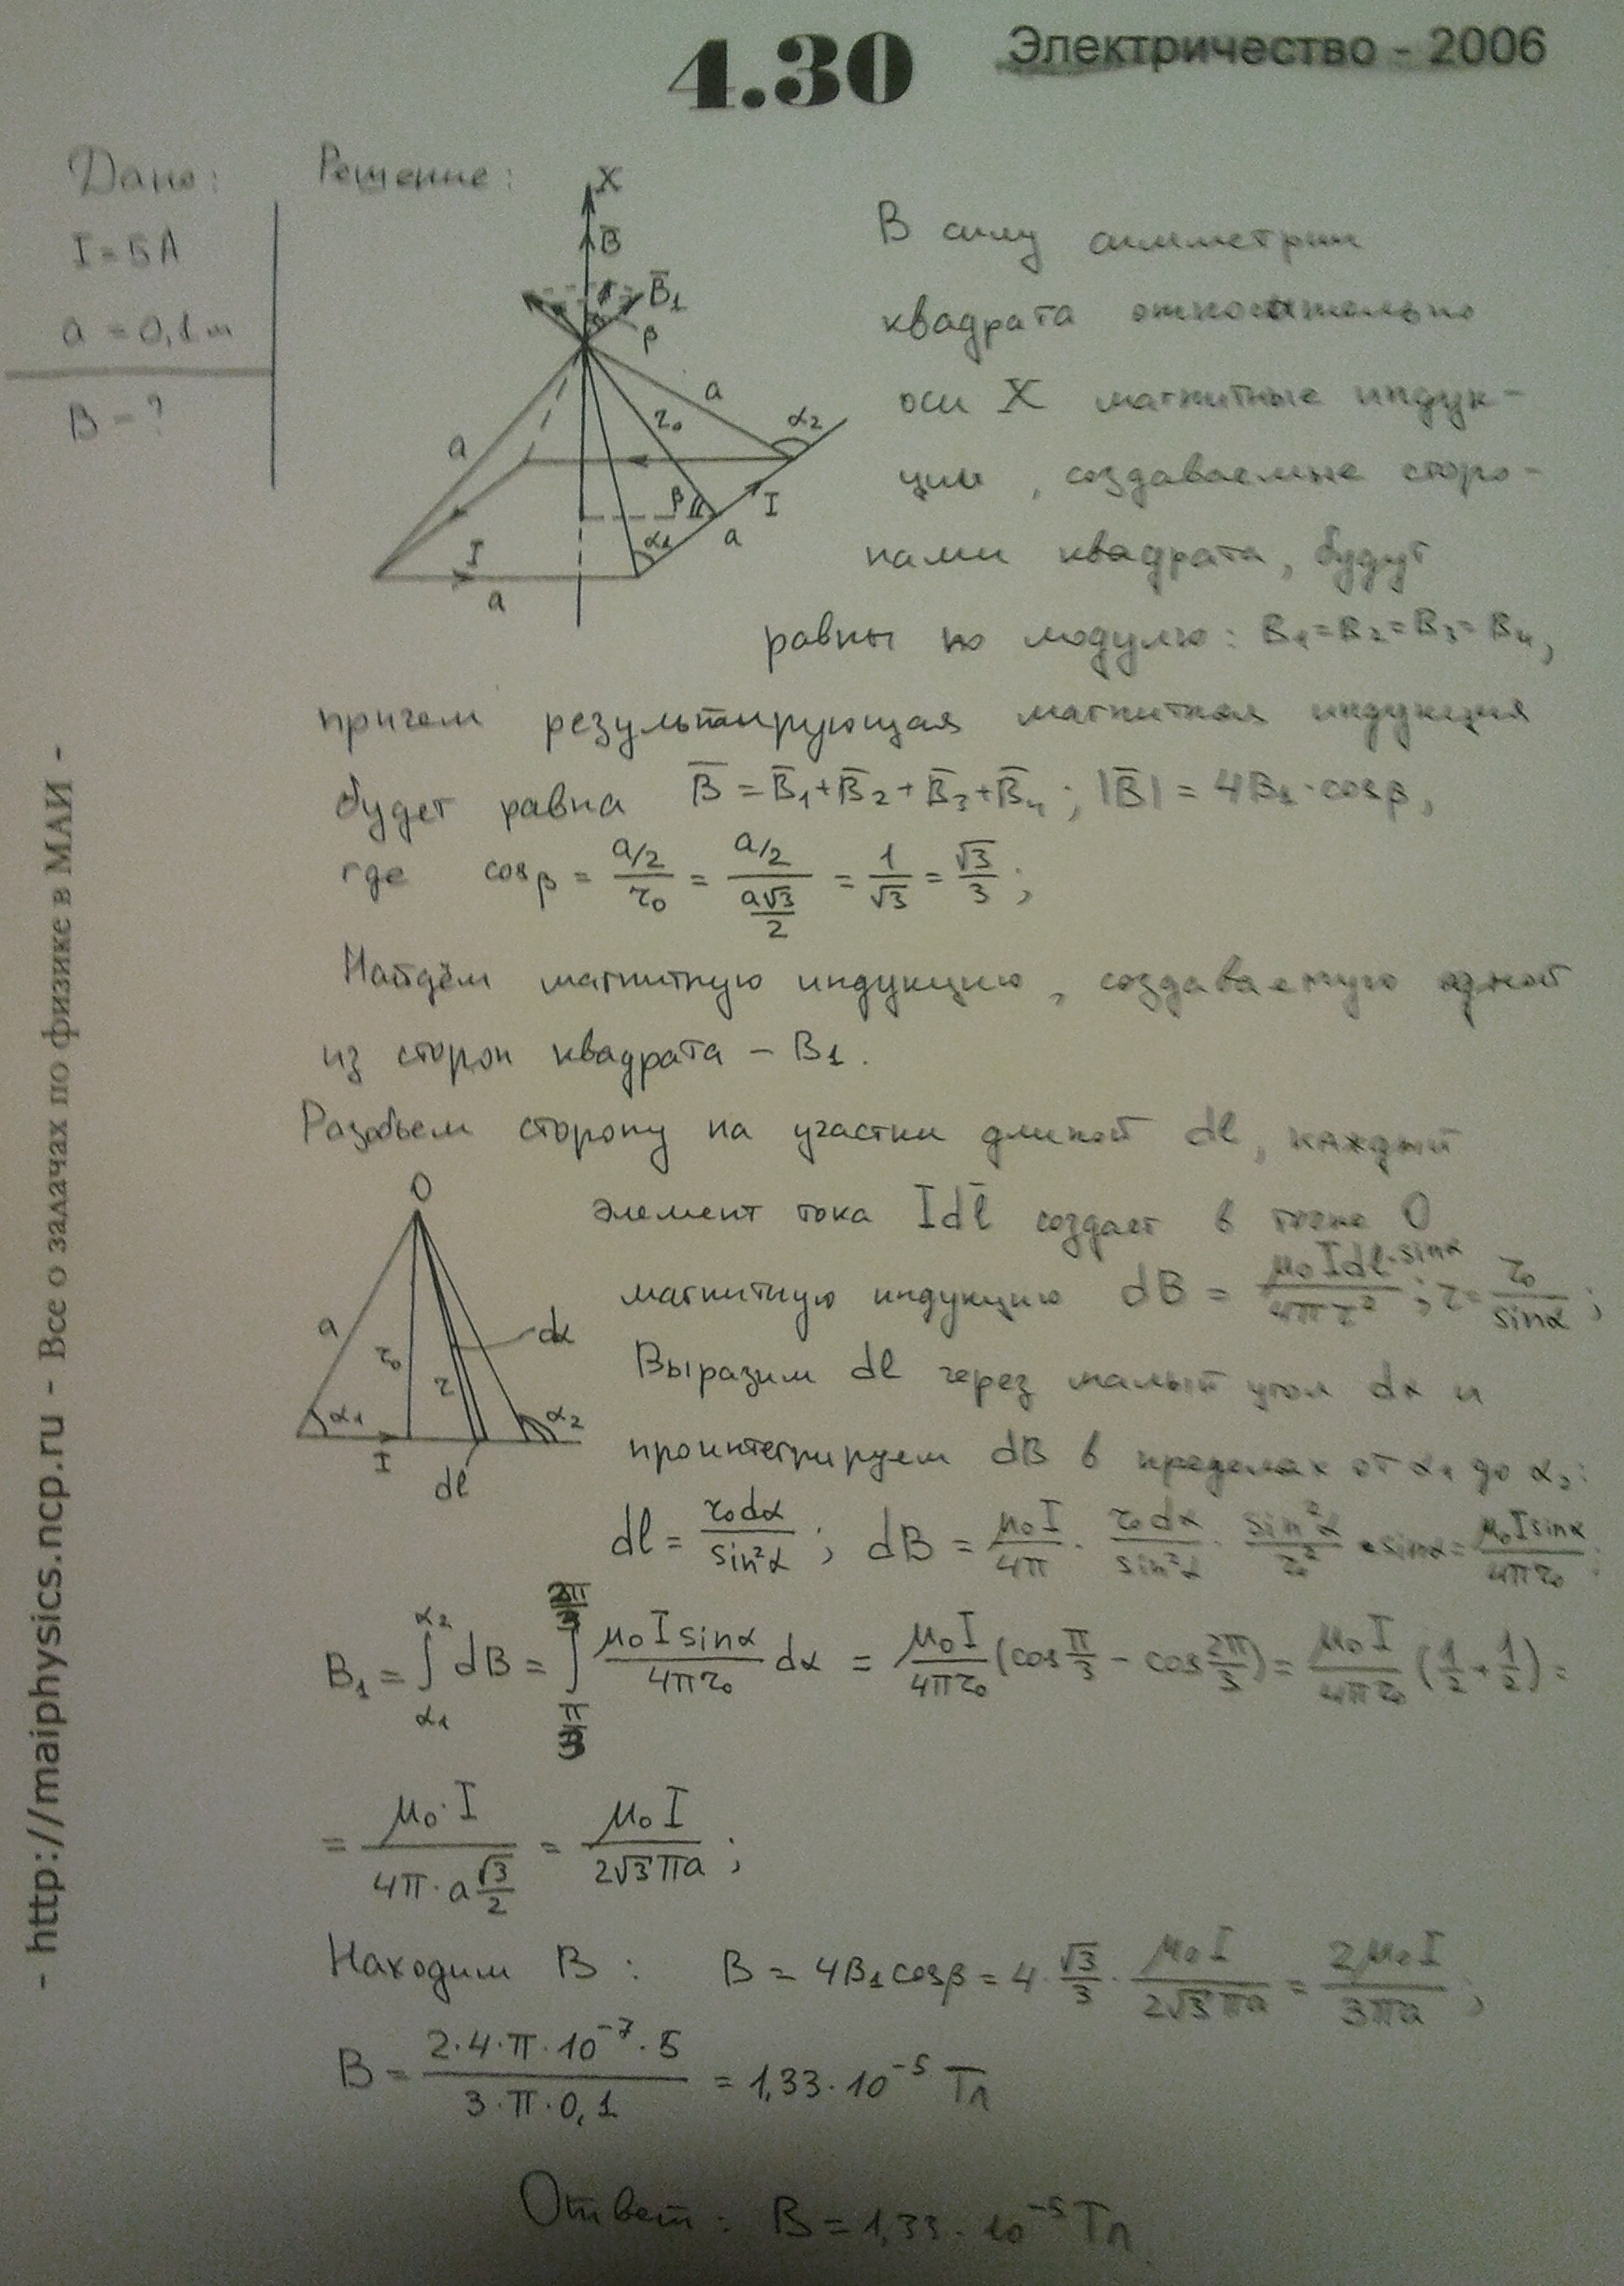 Электричество - 2006
4.30
Дано:
I = 5A
a = 0,1 м
B - ?
Решение:
X
B̄
B̄₁
β
a
r₀
α₂
a
β
I
a
α₁
I
a
В силу симметрии
квадрата относительно
оси X магнитные индук-
ции, создаваемые сторо-
нами квадрата, будут
равны по модулю: B₁=B₂=B₃=B₄,
причем результирующая магнитная индукция
будет равна B̄ = B̄₁+B̄₂+B̄₃+B̄₄; |B̄| = 4B₁·cosβ,
где cosβ = (a/2)/r₀ = (a/2)/(a√3/2) = 1/√3 = √3/3;
Найдём магнитную индукцию, создаваемую одной
из сторон квадрата – B₁.
Разобьем сторону на участки длиной dl, каждый
элемент тока Idl̄ создает в точке O
магнитную индукцию dB = μ₀Idl·sinα/4πr²; r = r₀/sinα;
Выразим dl через малый угол dα и
проинтегрируем dB в пределах от α₁ до α₂:
O
a
r₀
r
dα
α₁
I
dl
α₂
dl = r₀dα/sin²α; dB = μ₀I/4π · r₀dα/sin²α · sin²α/r₀² · sinα = μ₀Isinα/4πr₀;
B₁ = ∫_α₁^α₂ dB = ∫_π/3^2π/3 μ₀Isinα/4πr₀ dα = μ₀I/4πr₀ (cos π/3 - cos 2π/3) = μ₀I/4πr₀ (1/2 + 1/2) =
= μ₀·I/(4π·a √3/2) = μ₀I/2√3πa;
Находим B: B = 4B₁cosβ = 4·√3/3·μ₀I/2√3πa = 2μ₀I/3πa;
B = 2·4·π·10⁻⁷·5/3·π·0,1 = 1,33·10⁻⁵ Тл
Ответ: B = 1,33·10⁻⁵ Тл
- http://maiphysics.ncp.ru - Все о задачах по физике в МАИ -